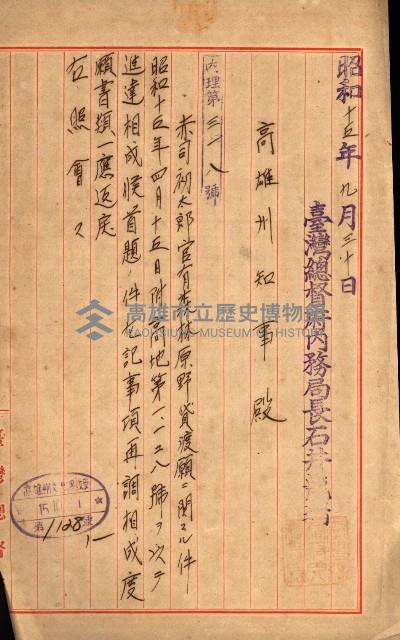 昭和十五年九月三十日
臺灣總督府內務局長石井
高雄州知事殿
內理第三一八號
赤司初太郎官有森林原野貸渡願ニ關スル件
昭和十五年四月十五日附高地第一、一二八號ヲ以テ
進達相成候首題ノ件左記事項再調相成度
願書類一應返戾
右照會ス
高雄市立歷史博物館
KAOHSIUNG MUSEUM OF HISTORY
15 11 1
1128
臺灣總督